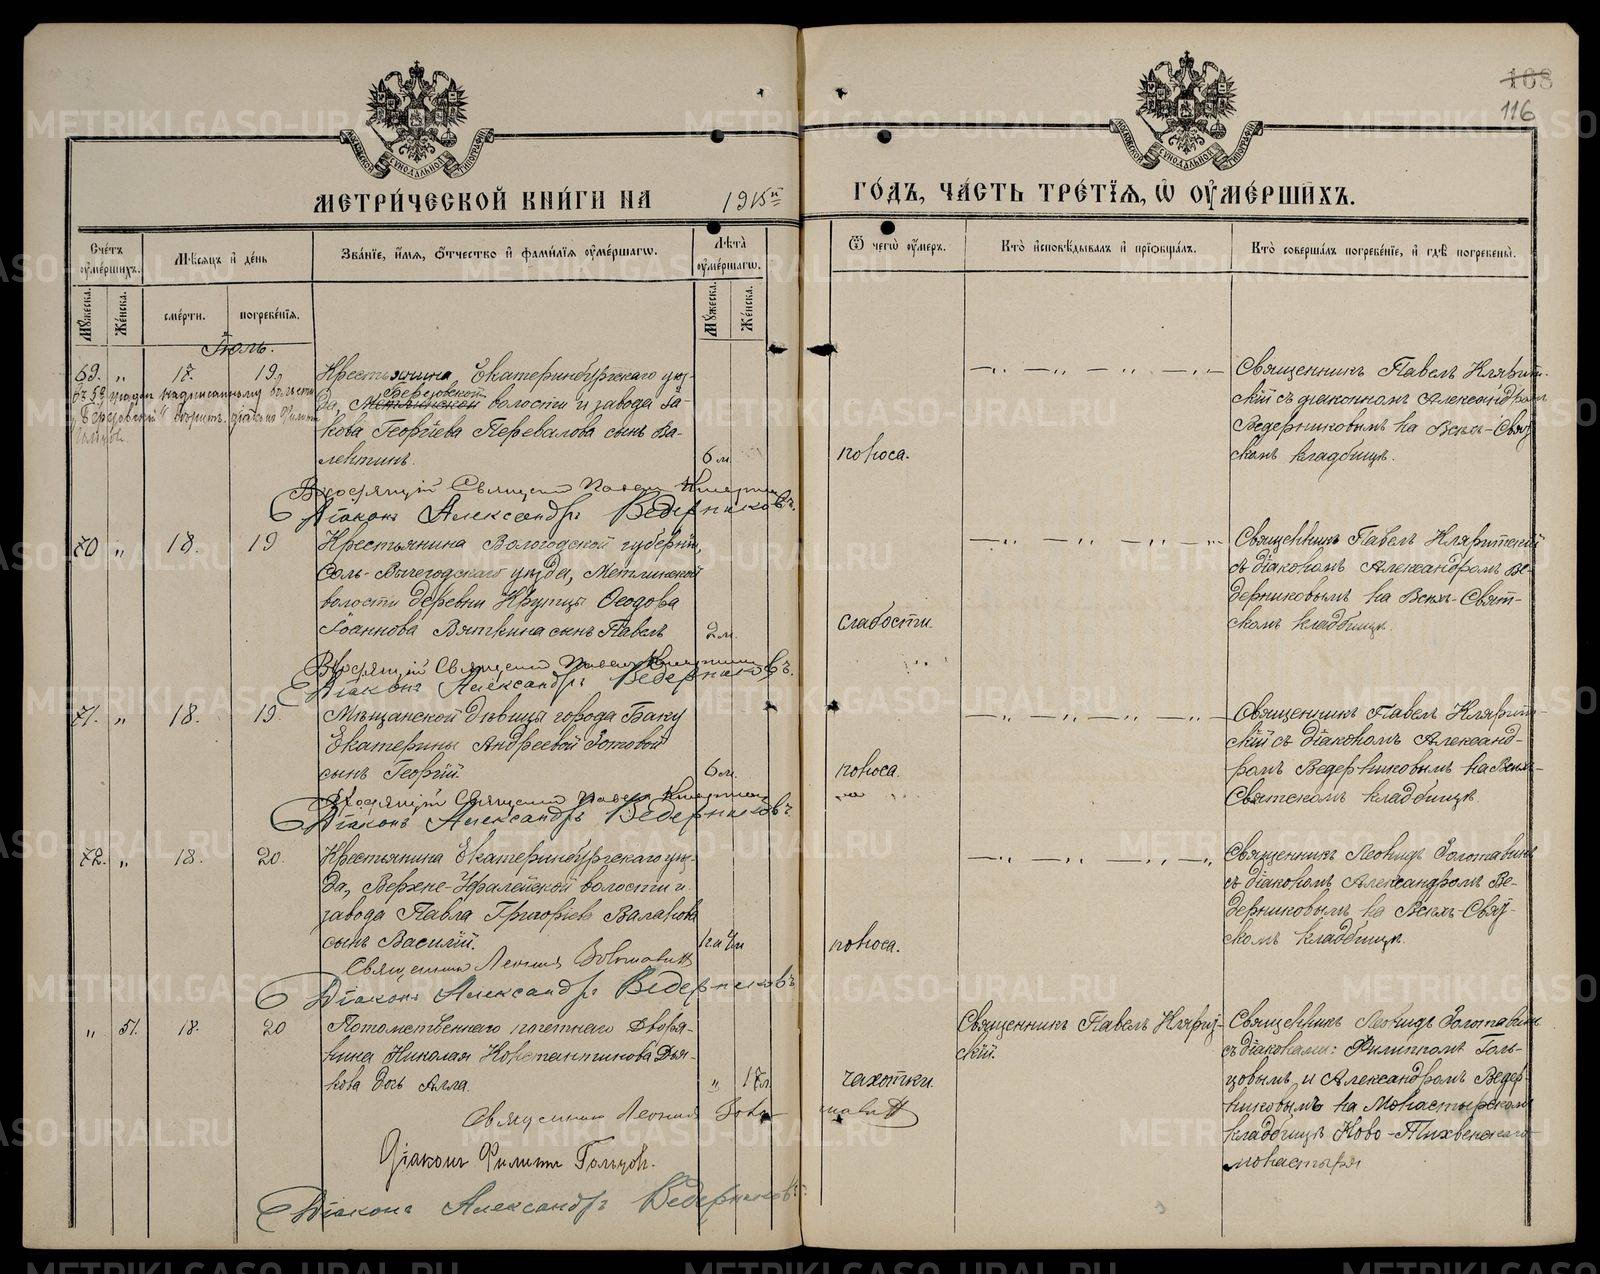 108
116
МЕТРИ́ЧЕСКОЙ КНИ́ГИ НА 1915й ГО́ДЪ, ЧА́СТЬ ТРЕ́ТІЯ, Ѡ҆ ОУ҆МЕ́РШИХЪ.
Сче́тъ оу҆ме́ршихъ.
Мꙋ́жеска.
Же́нска.
Мѣ́сяцъ и҆ де́нь
сме́рти.
погребе́нїѧ.
Зва́нїе, и҆́мѧ, ѻ҆́тчество и҆ фами́лїѧ оу҆ме́ршагѡ.
Лѣ́та оу҆ме́ршагѡ.
Мꙋ́жеска.
Же́нска.
Ѿ чегѡ̀ оу҆́меръ.
Кто̀ и҆сповѣ́дывалъ и҆ прїѻбща́лъ.
Кто̀ соверша́лъ погребе́нїе, и҆ гдѣ̀ погребены̀.
Іюль.
69. „ 17. 19.
Крестьянина Екатеринбургскаго уѣз-
Березовской
да, волости и завода Іа-
кова Георгіева Перевалова сынъ Ва-
лентинъ.
6 м.
поноса.
Священникъ Павелъ Кляри-
скій съ діакономъ Александромъ
Ведерниковымъ на Всѣхъ-Свят-
скомъ кладбищѣ.
Священ Павел
Діаконъ Александръ Ведерниковъ.
70 „ 18. 19
Крестьянина Вологодской губерніи,
Соль-Вычегодскаго уѣзда, Метлинской
волости деревни Крутцы Ѳеодора
Іоаннова Вяткина сынъ Павелъ
2 м.
слабости.
Священникъ Павелъ
съ діакономъ Александромъ Ве-
дерниковымъ на Всѣхъ-Свят-
скомъ кладбищѣ.
Священ Павел
Діаконъ Александръ Ведерниковъ.
71. „ 18. 19
Мѣщанской дѣвицы города Баку
Екатерины Андреевой Зотовой
сынъ Георгій.
6 м.
поноса.
Священникъ Павелъ
скій съ діакономъ Александ-
ромъ Ведерниковымъ на Всѣхъ-
Святскомъ кладбищѣ.
Священ Павел
Діаконъ Александръ Ведерниковъ.
72. „ 18. 20.
Крестьянина Екатеринбургскаго уѣз-
да, Верхне-Уфалейской волости и
завода Павла Григоріева
сынъ Василій.
1 г. и 4 м
поноса.
Священникъ Леонидъ Золотавинъ
съ діакономъ Александромъ Ве-
дерниковымъ на Всѣхъ-Свят-
скомъ кладбищѣ.
Священникъ Леонидъ Золотавинъ
Діаконъ Александръ Ведерниковъ
„ 51. 18. 20
Потомственнаго почетнаго Дворя-
нина Николая Константинова Дья-
кова дочь Алла.
„ 17 л.
чахотки.
Священникъ Павелъ
скій.
Священникъ Леонидъ Золотавинъ
съ діаконами: ФилиппомъГоль-
цовымъ и Александромъ Ведер-
никовымъ на Монастырскомъ
кладбищѣ Ново-Тихвинскаго
монастыря
Священникъ Леонидъ Золотавинъ
Діаконъ Филиппъ Гольцовъ.
Діаконъ Александръ Ведерниковъ.
METRIKI.GASO-URAL.RU